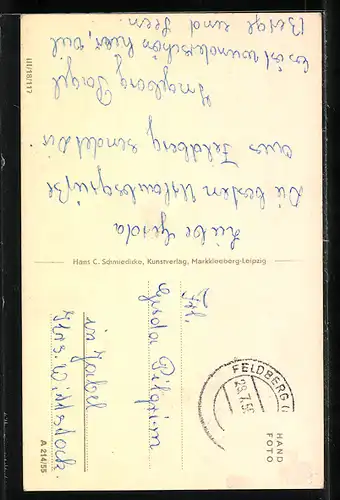 Liebe Gerda
Die besten Urlaubsgrüße
aus Feldberg sendet Dir
Ingeborg
es ist wunderschön hier, viel
Berge und Seen.
III/18/117
Hans C. Schmiedicke, Kunstverlag, Markkleeberg-Leipzig
Frl.
Gerda Pilgrim
in Zabel
Krs. Wittstock.
A 214/55
FELDBERG (
HAND
FOTO